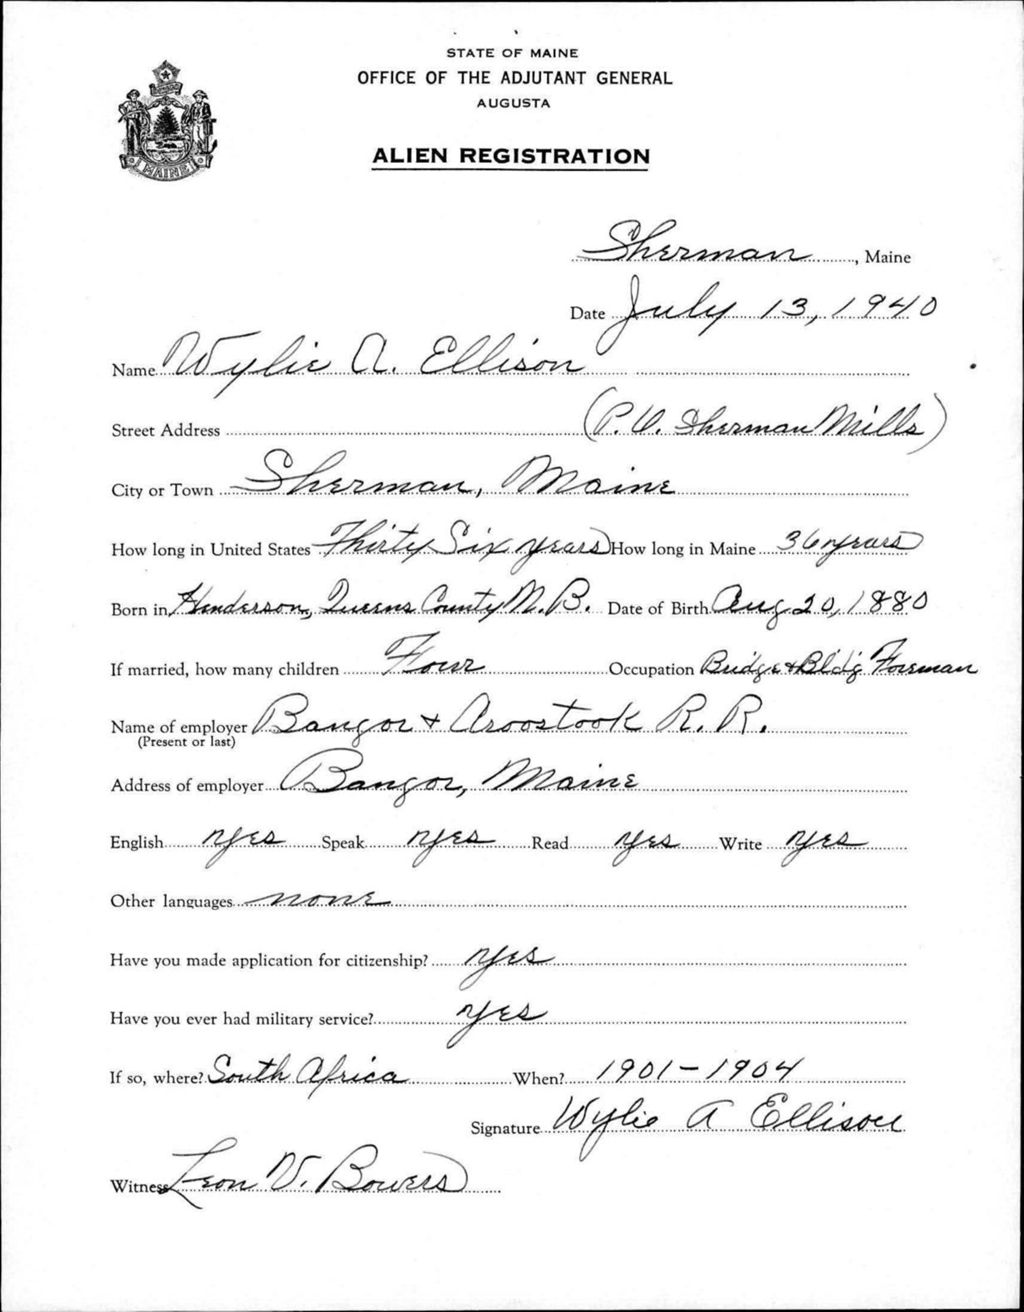 STATE OF MAINE
OFFICE OF THE ADJUTANT GENERAL
AUGUSTA
MAINE
ALIEN REGISTRATION
Sherman, Maine
Date July 13, 1940
Name Wylie A. Ellison
Street Address (P.O. Sherman Mills)
City or Town Sherman, Maine
How long in United States Thirty Six years How long in Maine 36 years
Born in Henderson, Queens County N.B. Date of Birth Aug 20, 1880
If married, how many children Four Occupation Bridge & Bldg Foreman
Name of employer Bangor & Aroostook R. R.
(Present or last)
Address of employer Bangor, Maine
English yes Speak yes Read yes Write yes
Other languages none
Have you made application for citizenship? yes
Have you ever had military service? yes
If so, where? South Africa When? 1901-1904
Signature Wylie A Ellison
Witness Leon V. Bowers